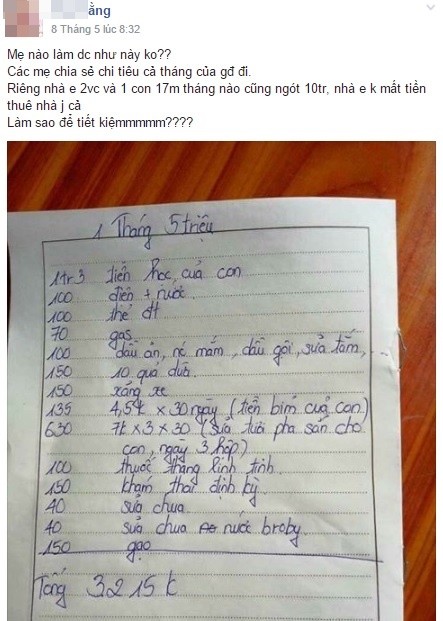 ằng
8 Tháng 5 lúc 8:32
Mẹ nào làm dc như này ko??
Các mẹ chia sẻ chi tiêu cả tháng của gđ đi.
Riêng nhà e 2vc và 1 con 17m tháng nào cũng ngót 10tr, nhà e k mất tiền
thuê nhà j cả
Làm sao để tiết kiệmmmmm????
1 Tháng 5 triệu
1tr3 tiền học của con
100 điện + nước
100 thẻ đt
70 gas
100 dầu ăn, nc mắm, dầu gội, sữa tắm, ...
150 10 quả dừa
150 xăng xe
135 4,5k x 30 ngày (tiền bỉm của con)
630 7k x 3 x 30 (sữa tươi pha sẵn cho
con, ngày 3 hộp)
100 thuốc thang linh tinh.
150 khám thai định kỳ.
40 sữa chua
40 sữa chua nước broby.
150 gạo
Tổng 3215k